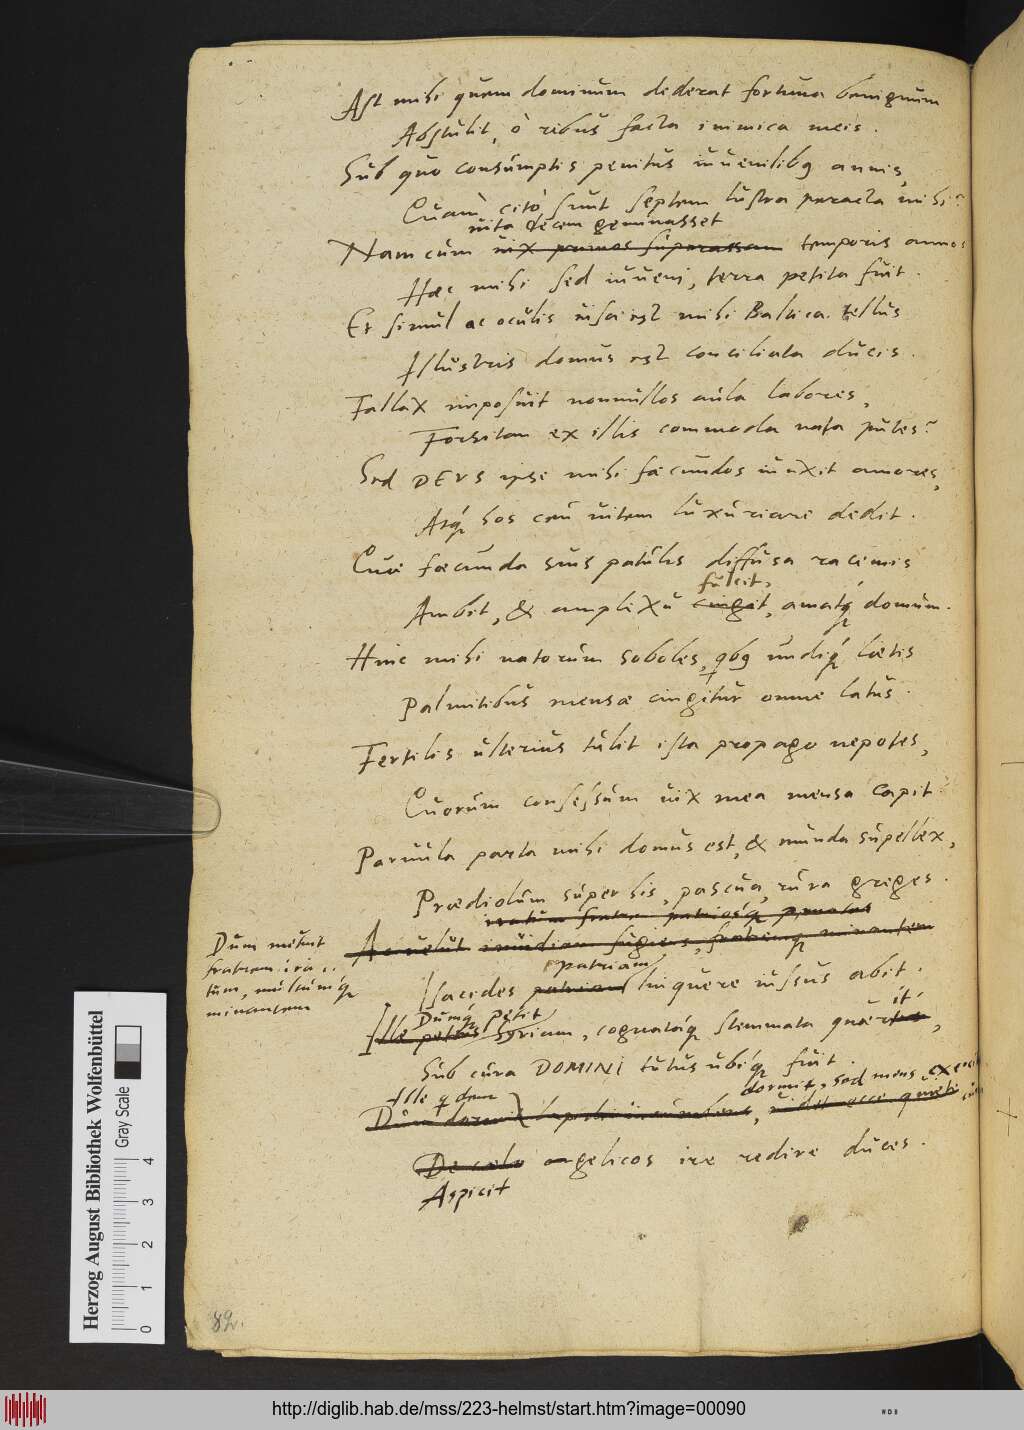 Ast mihi quem dominum dederat fortuna benignum
Abstulit, ô rebus facta inimica meis.
Sub quo consumptis penitus iuuenilibq annis,
Quàm citò sunt septem lustra peracta mihi?
uita decem geminasset
Nam cum uix primos superassem temporis annos
Haec mihi sed iuueni, terra petita fuit.
Et simul ac oculis uisa est mihi Baltica tellus
Illustris domus est conciliata ducis.
Fallax imposuit nonnullos aula labores,
Forsitan ex illis commoda nata putes?
Sed DEVS ipse mihi faecundos iunxit amores,
Atq́ hos ceu uitem luxuriare dedit.
Quae foecunda suis patulis diffusa racemis
fulcit,
Ambit, & amplexu cingit, amatq́ domum.
Hinc mihi natorum soboles, qbq undiq́ laetis
Palmitibus mensae cingitur omne latus.
Fertilis ulterius tulit ista propago nepotes,
Quorum consessum uix mea mensa capit.
Paruula parta mihi domus est, & munda supellex,
Praediolum superbis, pascua, rura greges.
iratum fratrem patriosq́
Ac uelut inuidiam fugiens, fratremq́ minantem
Dum metuit
fratrem ira..
tum, multumq́
minantem
patriam
Isacides patriam linquere iussus abit.
Dumq́ petit it
Ille petens Syriam, cognataq́ stemmata quaerens,
Sub cura DOMINI tutus ubiq́ fuit.
Ille qdem dormit, sed mens
Dum dormit lapidi incumbens, uidet ecce quieti
De coelo angelicos ire redire duces.
Aspicit
82.
Herzog August Bibliothek Wolfenbüttel
Gray Scale
0 1 2 3 4
http://diglib.hab.de/mss/223-helmst/start.htm?image=00090